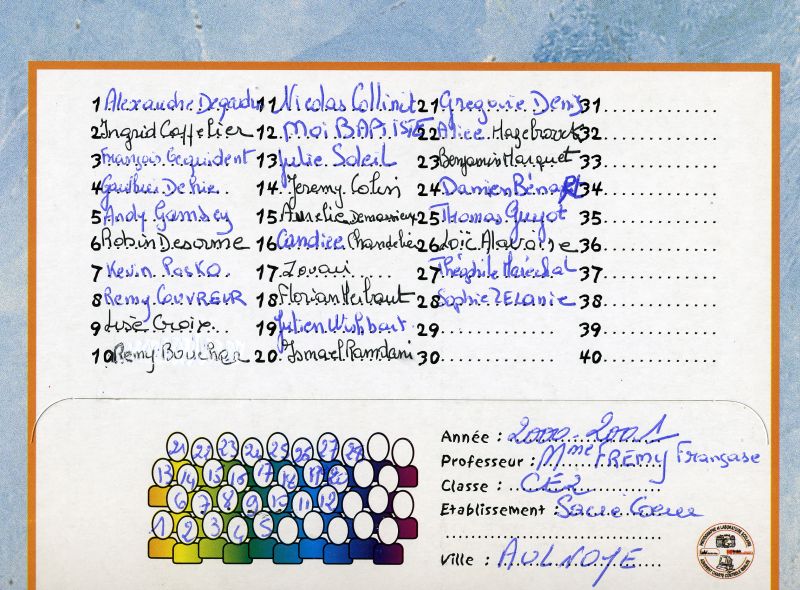 1 Alexandre Degaudin 11 Nicolas Collinet 21 Gregorie Denis 31
2 Ingrid Caffelier 12 Moi BAPTISTE 22 Alice Hazebrouck 32
3 François 13 Julie Soleil 23 Benjamin Marquet 33
4 Gauthier 14 Jeremy Colin 24 Damien Bénard 34
5 Andy Gambey 15 Aurelie Demassieux 25 Thomas Guyot 35
6 Robin Desorme 16 Candice Chandelier 26 Loïc Alavoine 36
7 Kevin Pasko 17 Zouaui 27 Théophile Maréchal 37
8 Remy COUVREUR 18 Florian 28 Sophie ZELANIE 38
9 Croise 19 Julien Wishbart 29 39
10 Remy Boucher 20 Ismael Ramdani 30 40
21 22 23 24 25 26 27 28
13 14 15 16 17 18 19 20
6 7 8 9 10 11 12
1 2 3 4 5
Année : 2000-2001
Professeur : Mme FREMY Françoise
Classe : CE2
Etablissement : Sacré Coeur
Ville : AULNOYE